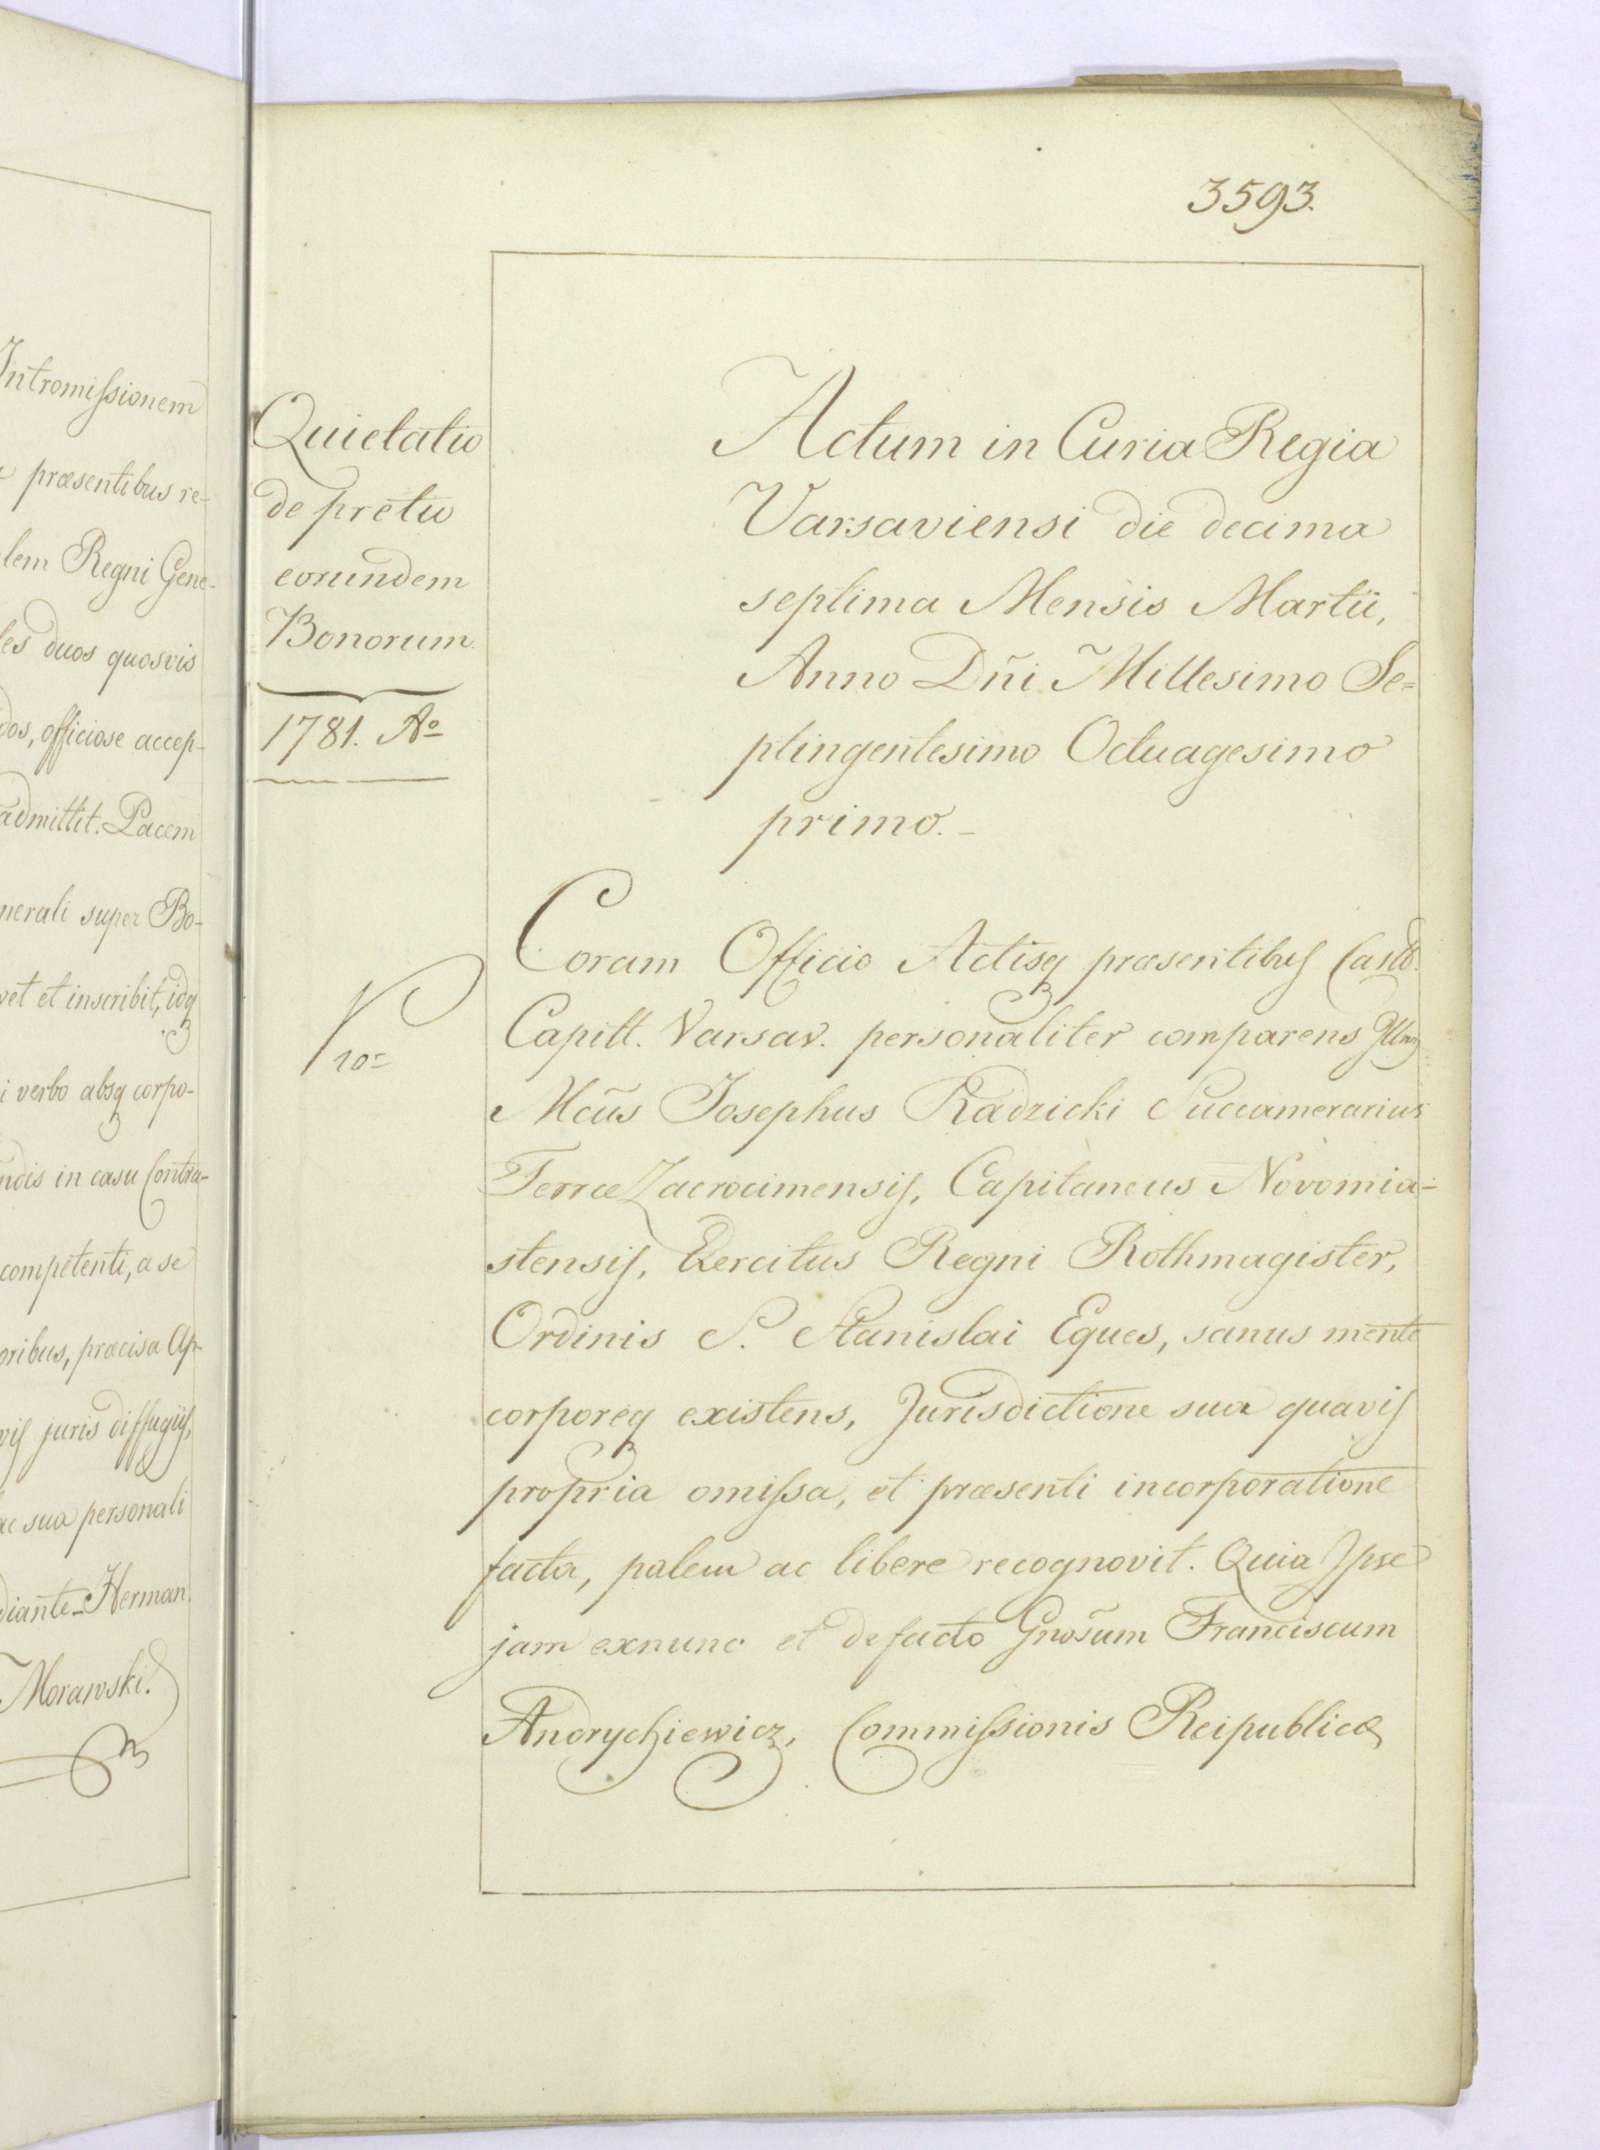 Intromissionem
præsentibus re-
lem Regni Gene-
les duos quosvis
dos, officiose accep-
admittit. Pacem
nerali super Bo-
vet et inscribit, idq
i verbo absq corpo-
ndis in casu Contra-
competenti, a se
oribus, præcisa Ap-
vis juris diffugiis,
ac sua personali
diante Herman.
Morawski.
3593.
Quietatio
de pretio
eorundem
Bonorum.
1781. Aº
Actum in Curia Regia
Varsaviensi die decima
septima Mensis Martii,
Anno Dñi Millesimo Se=
ptingentesimo Octuagesimo
primo.
Coram Officio Actisq præsentibus Castr.
Capitt. Varsav. personaliter comparens Illmg
Mcũs Josephus Radzicki Succamerarius
Terræ Zacrocimensis, Capitaneus Novomia=
stensis, Exercitus Regni Rothmagister,
Ordinis S. Stanislai Eques, sanus mente
corporeq existens, Jurisdictione sua quavis
propria omissa, et præsenti incorporatione
facta, palem ac libere recognovit. Quia Ipse
jam exnunc et defacto Gnosũm Franciscum
Andrychiewicz, Commissionis Reipublicæ